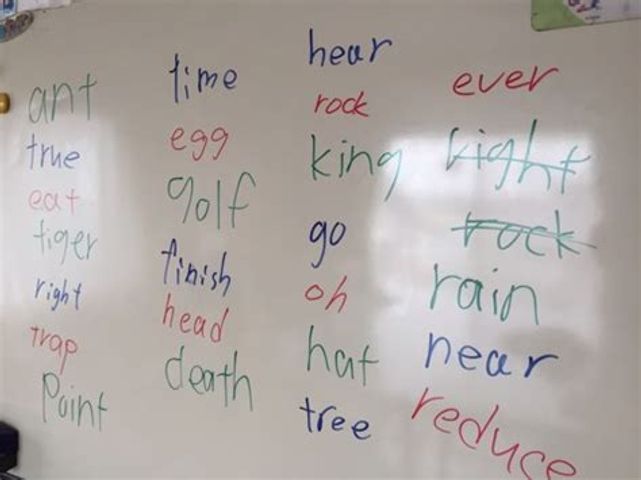 ant
true
eat
tiger
right
trap
Point
time
egg
golf
finish
head
death
hear
rock
king
go
oh
hat
tree
ever
right
rock
rain
near
reduce